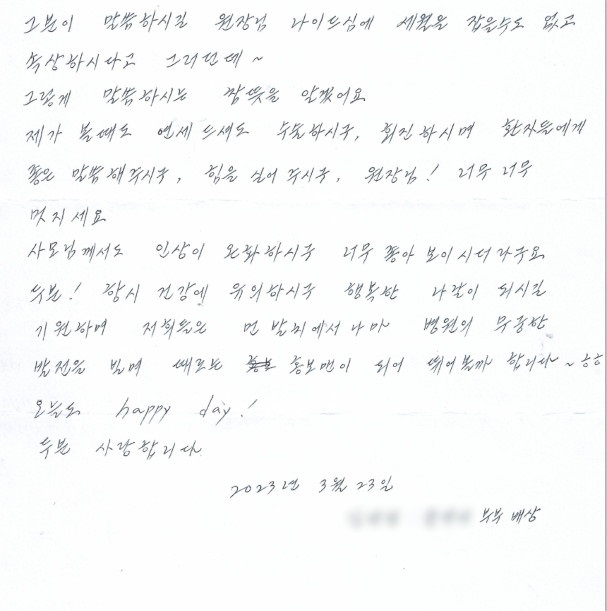 그분이 말씀하시길 원장님 나이드심에 세월을 잡을수도 없고
속상하시다고 그러던데~
그렇게 말씀하시는 참뜻을 알겠어요
제가 볼때도 연세드셔도 수술하시구, 회진하시며 환자들에게
좋은 말씀해주시구, 힘을 실어 주시구, 원장님! 너무 너무
멋지세요
사모님께서도 인상이 온화하시구 너무 좋아 보이시더라구요
두분! 항시 건강에 유의하시구 행복한 나날이 되시길
기원하며 저희들은 먼 발치에서나마 병원의 무궁한
발전을 빌며 때로는 홍보맨이 되어 뛰어볼까 합니다~ㅎㅎ
오늘도 happy day!
두분 사랑합니다
2023년 3월 23일
부부 배상